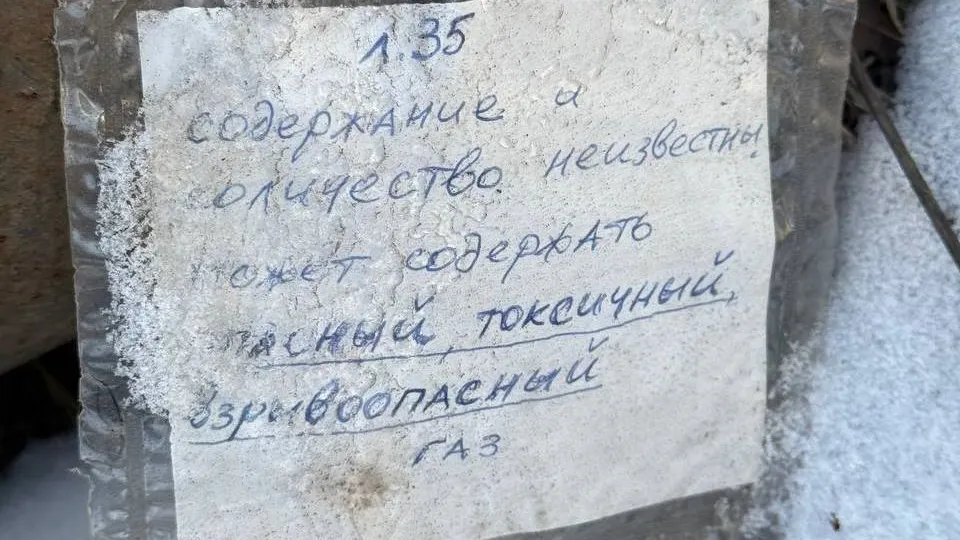 л.35
содержание и
количество неизвестны
может содержать
опасный, токсичный,
взрывоопасный
газ